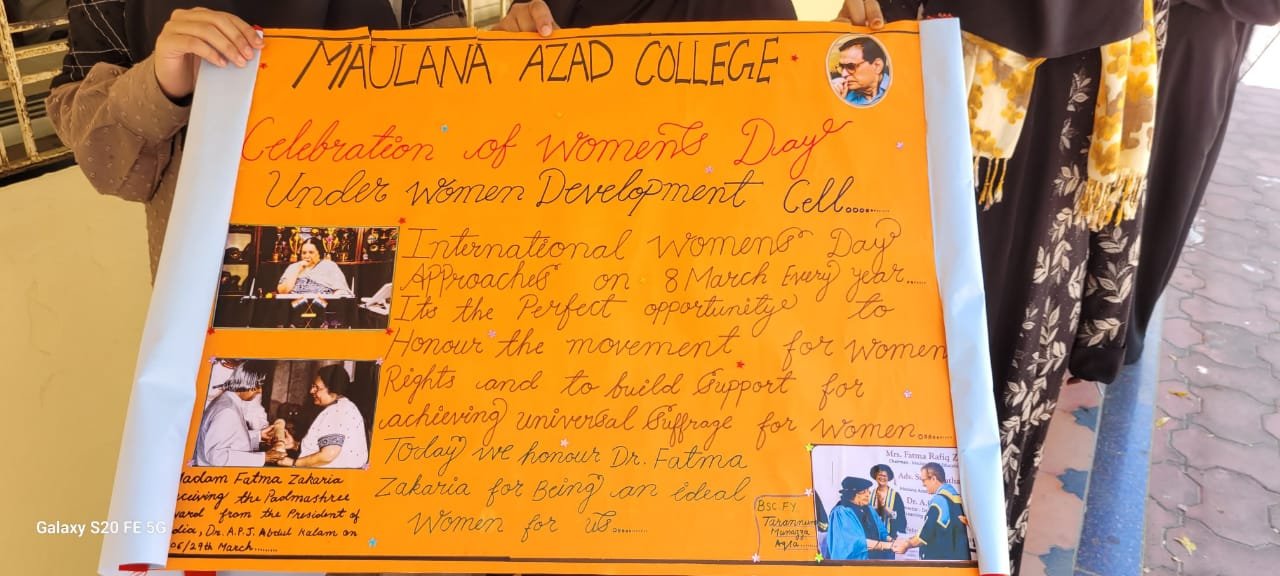 MAULANA AZAD COLLEGE
Celebration of Women's Day
Under Women Development Cell........
International Women's Day
Approaches on 8 March Every year.....
It's the Perfect opportunity to
Honour the movement for Women
Rights and to build Support for
achieving universal Suffrage for Women.......
Today we honour Dr. Fatma
Zakaria for Being an ideal
Women for us......
adam Fatma Zakaria
ceiving the Padmashree
ward from the President of
dia, Dr. A.P.J. Abdul Kalam on
06/29th March.......
BSC.FY
Tarannum
Munazza
Aqsa
Mrs. Fatma Rafiq Z
Chairman
Adv. S
Dr. A
Galaxy S20 FE 5G